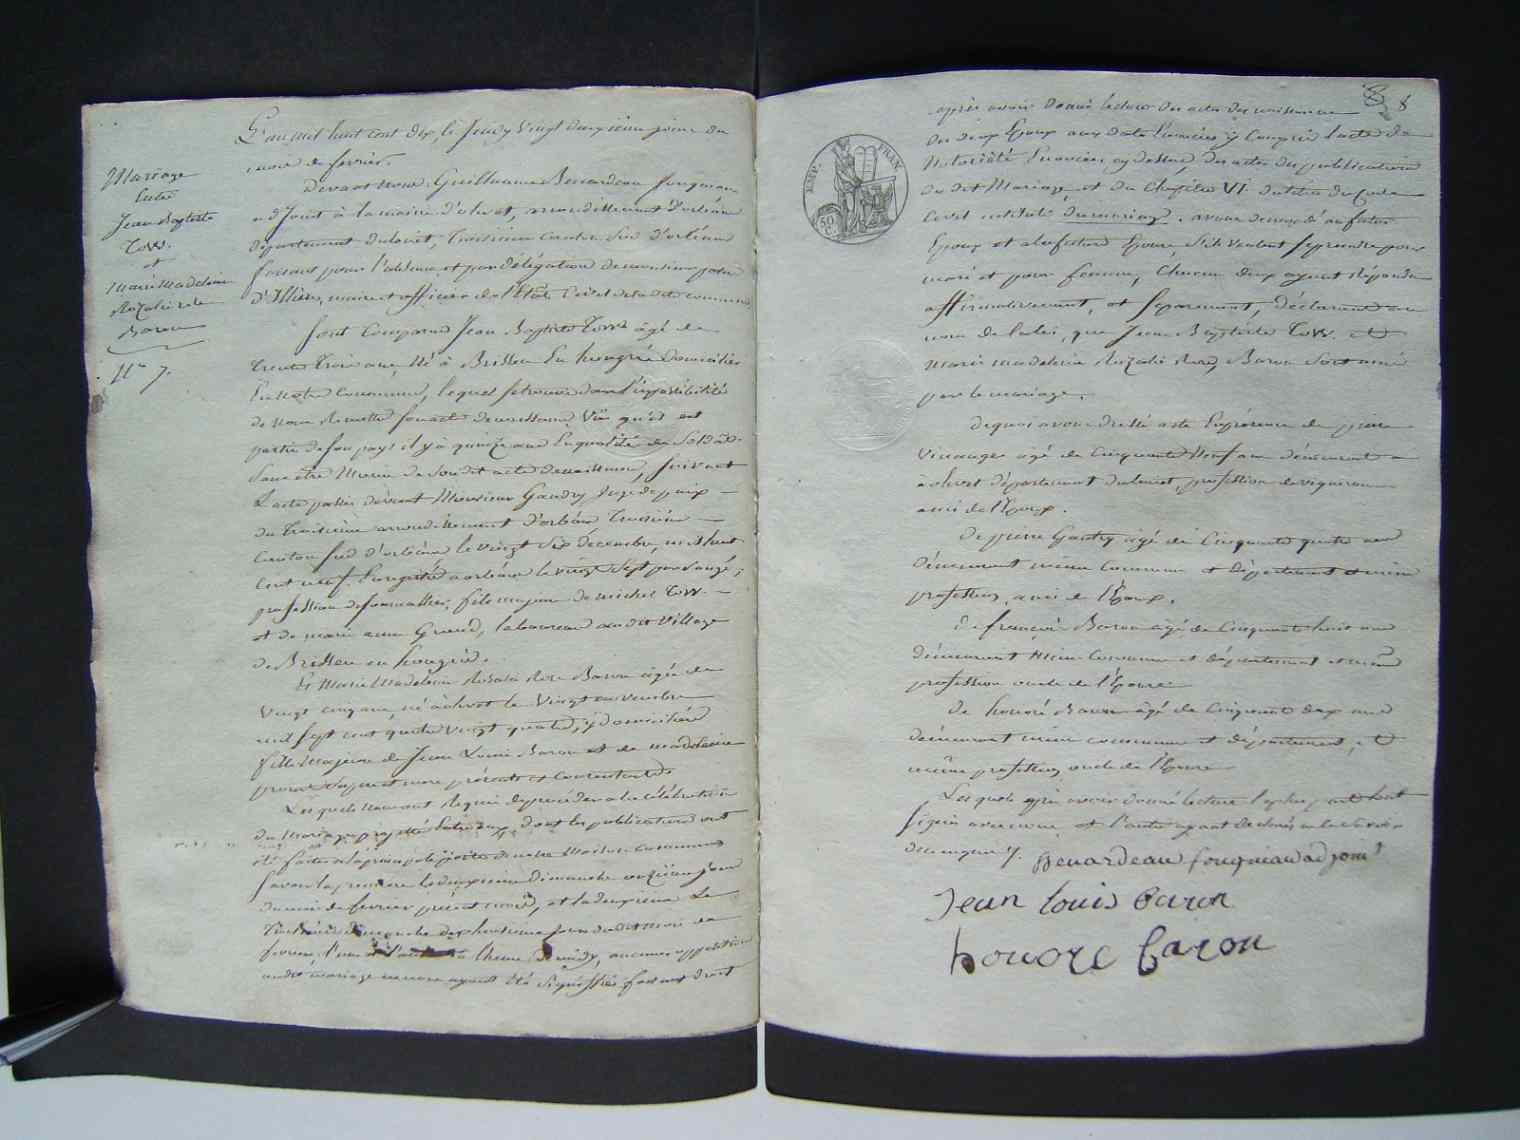 Mariage
Entre
Jean Baptiste
Torr.
et
Marie Madeleine
Rozalie
Baron
N° 7.
L'an mil huit cent dix, le Jeudy Vingt deuxième jour du
mois de fevrier.
Devant nous Guillaume Benardeau Fougniau
adjoint à la mairie d'olivet, arrondissement d'orléans
département du loiret, Troisième Canton Sud d'orléans
faisant pour l'absence, et par délégation de monsieur
d'Illiers, maire et officier de l'Etat Civil de la dite commune,
sont Comparus Jean Baptiste Torr âgé de
trente trois ans, Né à Brissen En hongrie Domicilié
En notre Commune, lequel se trouve dans l'impossibilité
de nous Remettre son acte de naissance, Vû qu'il est
partie de son pays il y à quinze ans En qualité de Soldat
sans être Muni de son dit acte de naissance, suivant
L'acte passé devant Monsieur Gaudry Juge de paix
du Troisième arrondissement d'orléans Troisième
Canton sud d'orléans le vingt six décembre, mil huit
Cent neuf. Enregistré a orléans le vingt sept par
profession de journallier, fils majeur de michel Torr.
et de marie anne Grand, laboureur audit Village
de Brissen en hongrie.
Et Marie Madeleine Rosalie Baron agée de
Vingt cinq ans, né à olivet le Vingt un
mil sept cent quatre vingt quatre, y domiciliée
fille Majeure de Jean Louis Baron et de madeleine
père et mere présents et Consentants
Lesquels nous ont Requis de procéder a la célébration
du Mariage projetté Entre eux, dont les publications ont
été faites à la principale porte de notre Maison Commune
savoir la première le deuxième dimanche onzième jour
du mois de fevrier présent mois, et la deuxième Le
troisième dimanche dix huitième jour du dit mois de
fevrier, à l'heure de midy, aucune opposition
audit mariage ne nous ayant été signiffiée faisant droit
8
EMP. FRAN.
50 C.
après avoir donné lecture des actes de naissance
des deux Epoux aux date Enoncées y Compris l'acte de
Notoriété Enoncée cy dessus, des actes des publications
du dit Mariage et du Chapitre VI du titre du Code
Civil intitulé du mariage. avons demandé au futur
Epoux et a la future Epouse s'ils veulent se prendre pour
mari et pour femme, Chacun deux ayant répondu
affirmativement, et séparement, déclarons au
nom de la loi, que Jean Baptiste Torr. et
Marie madeleine Rozalie Baron sont unis
par le mariage.
de quoi avons dressé acte En présence de pierre
agé de Cinquante Neuf ans démeurant
a olivet département du loiret, profession de vigneron
ami de l'Epoux.
De pierre Gautry agé de Cinquante quatre ans
démeurant même Commune et département et même
profession, ami de l'Epoux.
De françois Baron agé de Cinquante huit ans
démeurant même Commune et département et même
profession oncle de l'Epouse
De honoré Baron âgé de Cinquante deux ans
démeurant même commune et département, et
même profession oncle de l'Epouse
Lesquels après avoir donné lecture l'oncle, père tout
signé avec nous, et l'autre ayant déclarés ne le savoir
de ce enquis.
Benardeau fougniau adjoint
Jean louis Baron
honore baron